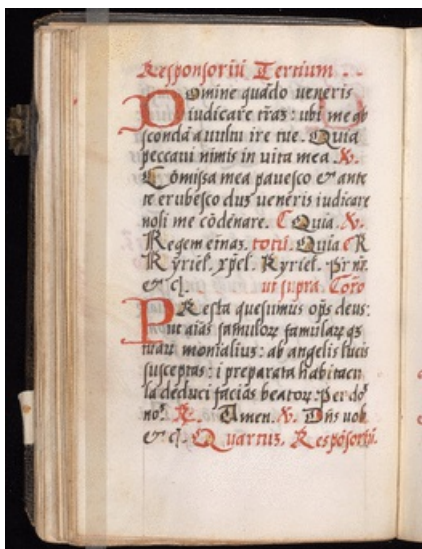 Responsoriū Tertium
Domine quādo veneris
iudicare trās : ubi me ab
scondā a vultu ire tue. Quia
peccavi nimis in vita mea. V.
Cōmissa mea pavesco & ante
te erubesco dus veneris iudicare
noli me cōdēnare. C Quia. V.
Regem einas. totū. Quia C R
Kyriel. xp̄el. Kyriel. Pr nr.
& cͣ. ut supra. Toro
PResta quesumus op̄s deus:
ut aīas famulorꝝ famularꝝ qꝫ
tuarꝝ : ab angelis lucis
susceptas : i preparata habitacu
la deduci facias beatorꝝ. Per dō
no. R. Amen. V. Dn̄s vob
& cͣ. Quartus. Respōsoriū.